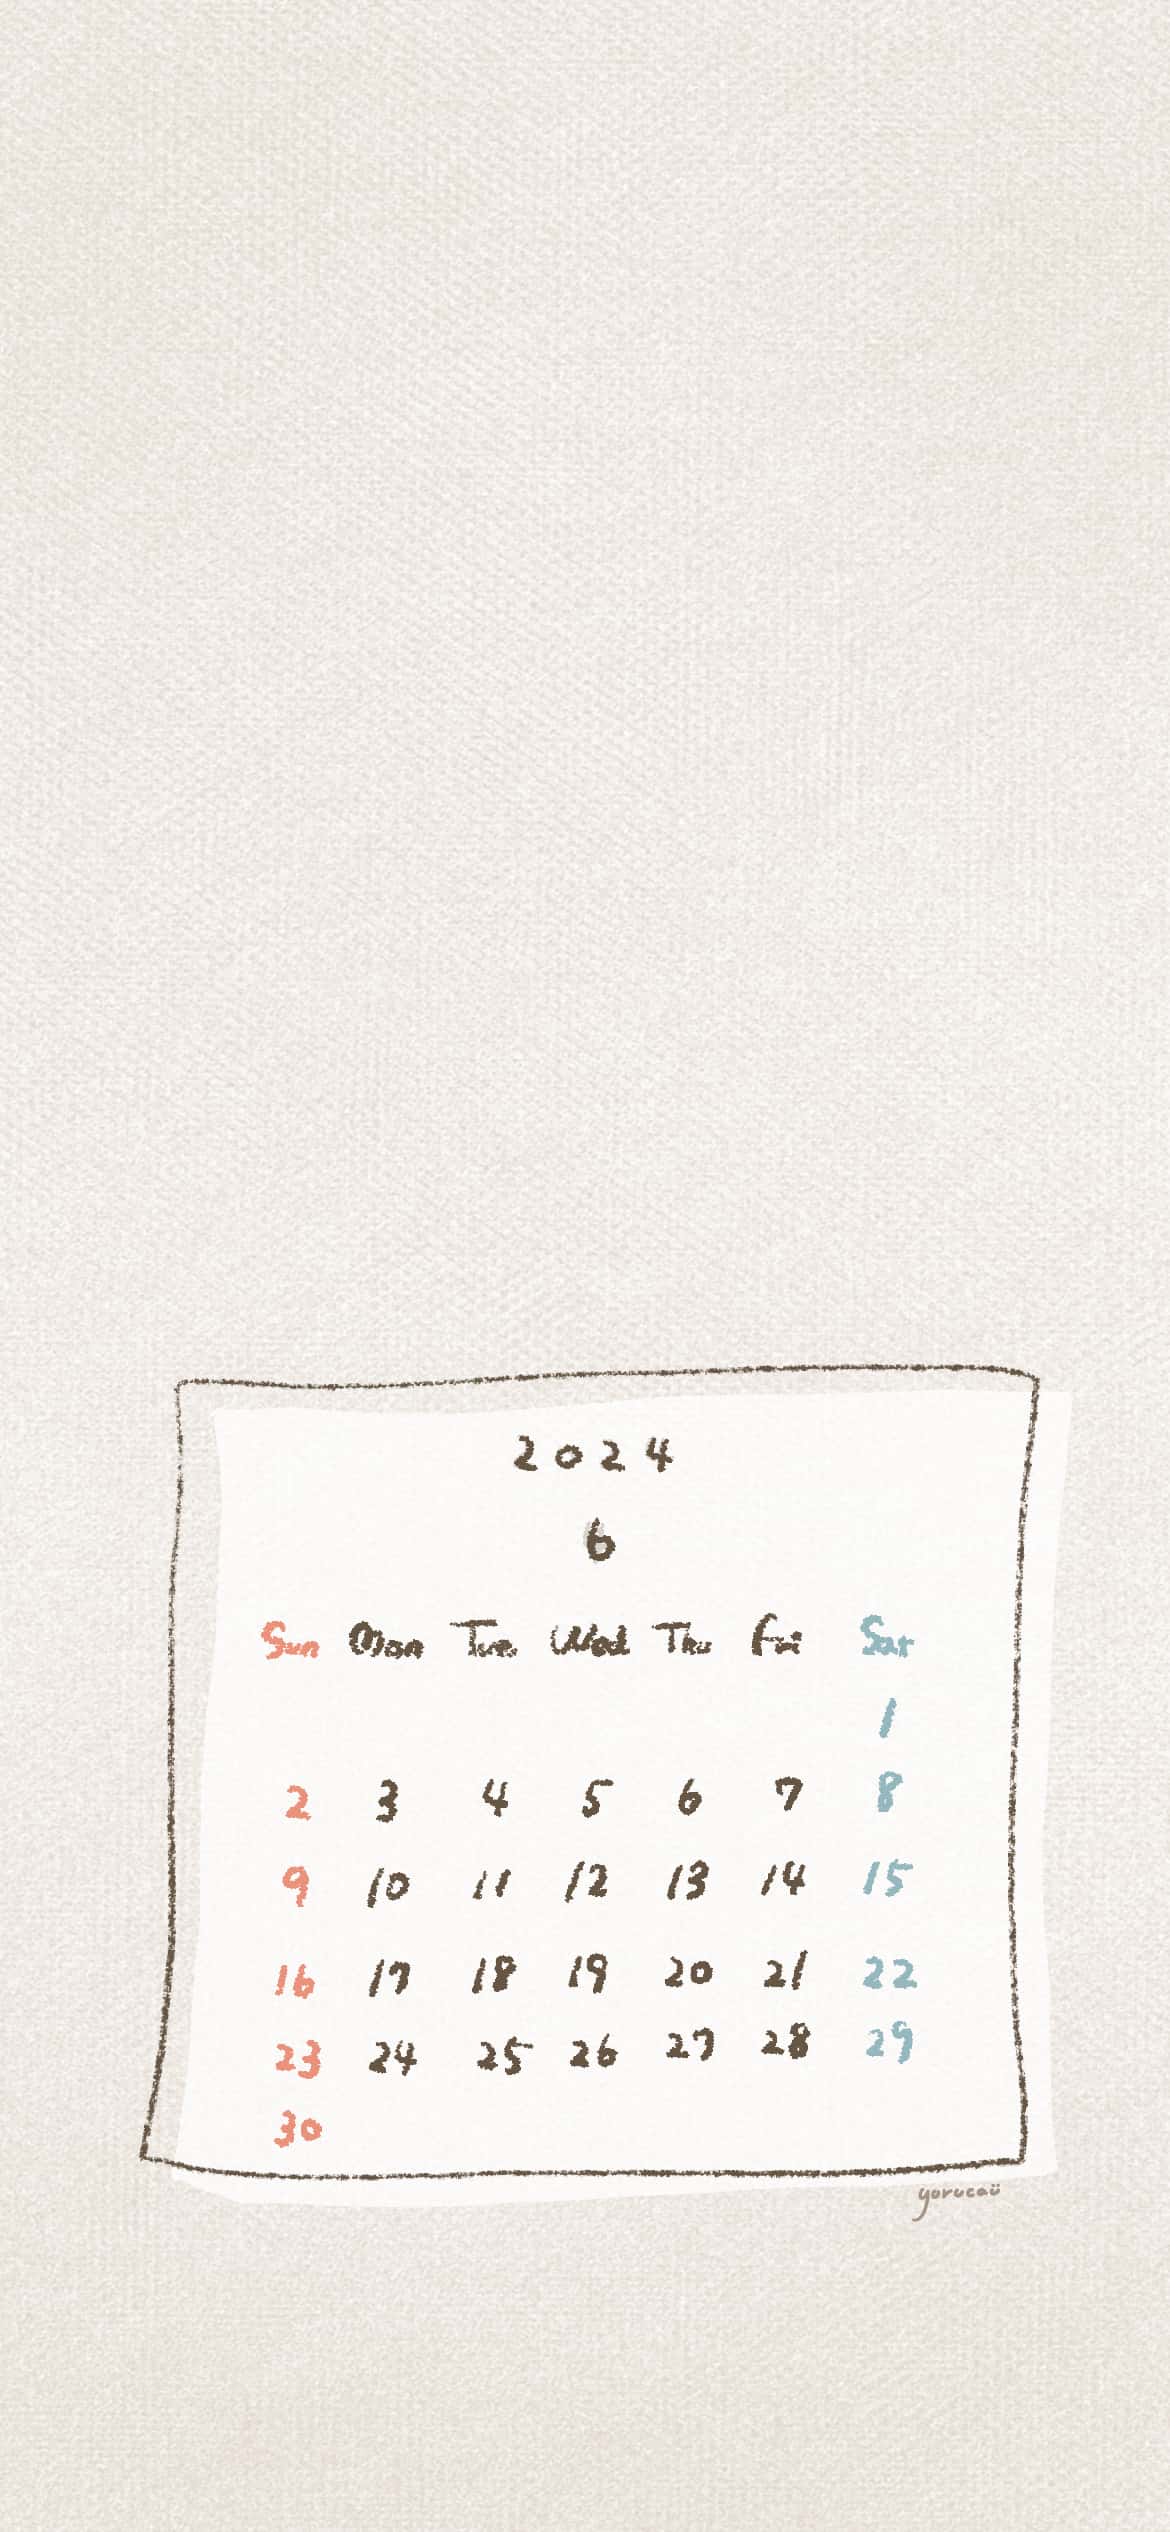 2024
6
Sun Mon Tue Wed Thu Fri Sat
1
2 3 4 5 6 7 8
9 10 11 12 13 14 15
16 17 18 19 20 21 22
23 24 25 26 27 28 29
30
yorucaü